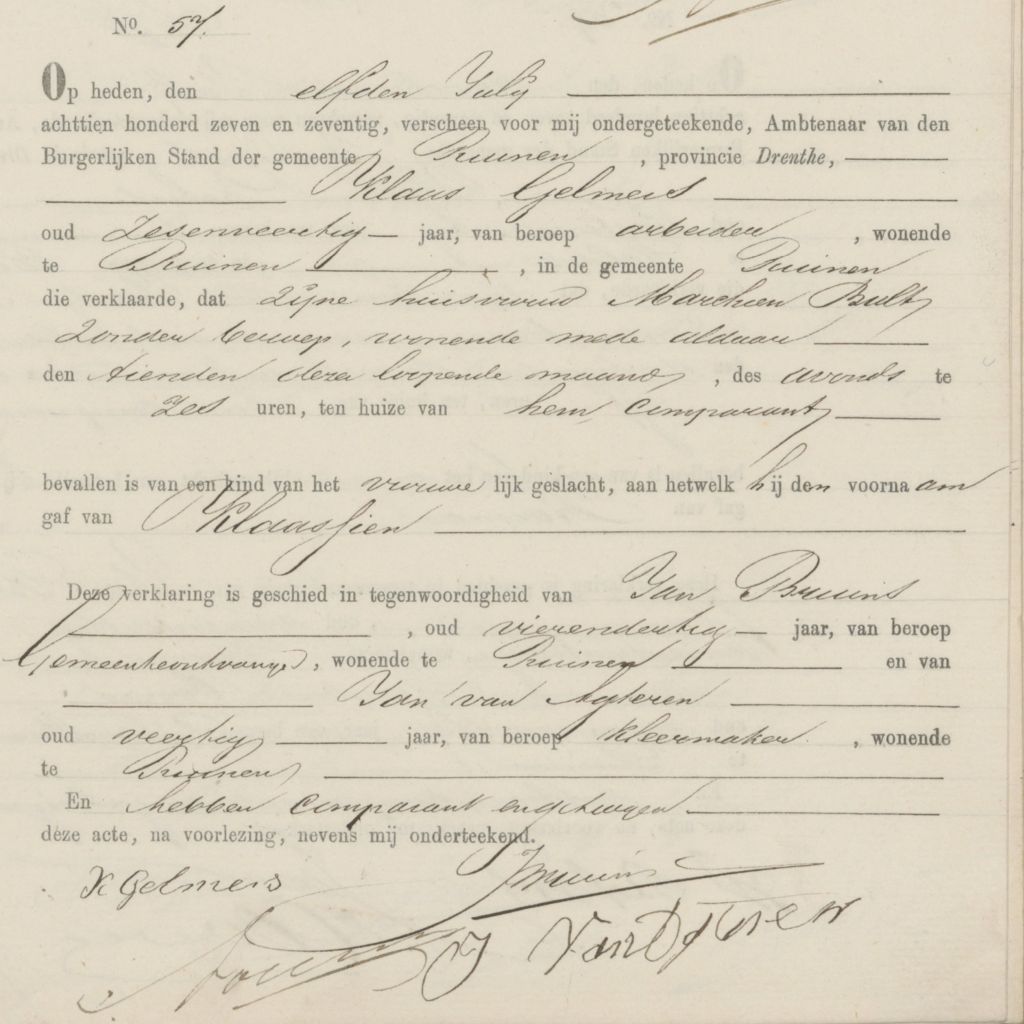 No. 57.
Op heden, den elfden July
achttien honderd zeven en zeventig, verscheen voor mij ondergeteekende, Ambtenaar van den
Burgerlijken Stand der gemeente Ruinen, provincie Drenthe,
Klaas Gelmers
oud zesenveertig jaar, van beroep arbeider, wonende
te Ruinen, in de gemeente Ruinen
die verklaarde, dat zijne huisvrouw Marchien Bult
zonder beroep, wonende mede aldaar
den tienden dezer loopende maand, des avonds te
zes uren, ten huize van hem comparant
bevallen is van een kind van het vrouwelijk geslacht, aan hetwelk hij den voornaam
gaf van Klaassien
Deze verklaring is geschied in tegenwoordigheid van Jan Bruins
, oud vierendertig jaar, van beroep
Gemeenteontvanger, wonende te Ruinen en van
Jan van Agteren
oud veertig jaar, van beroep kleermaker, wonende
te Ruinen
En hebben comparant en getuigen
deze acte, na voorlezing, nevens mij onderteekend.
K Gelmers
JBruins
J van